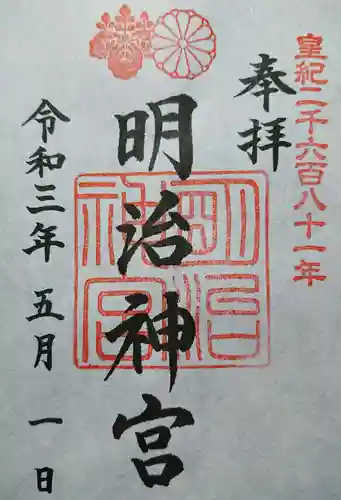 皇紀二千六百八十一年
奉拝
明治神宮
明治神宮
令和三年五月一日